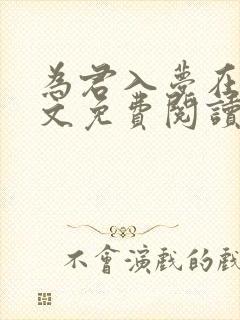 为君入夢在
文免費閱讀
不會演戲的戲